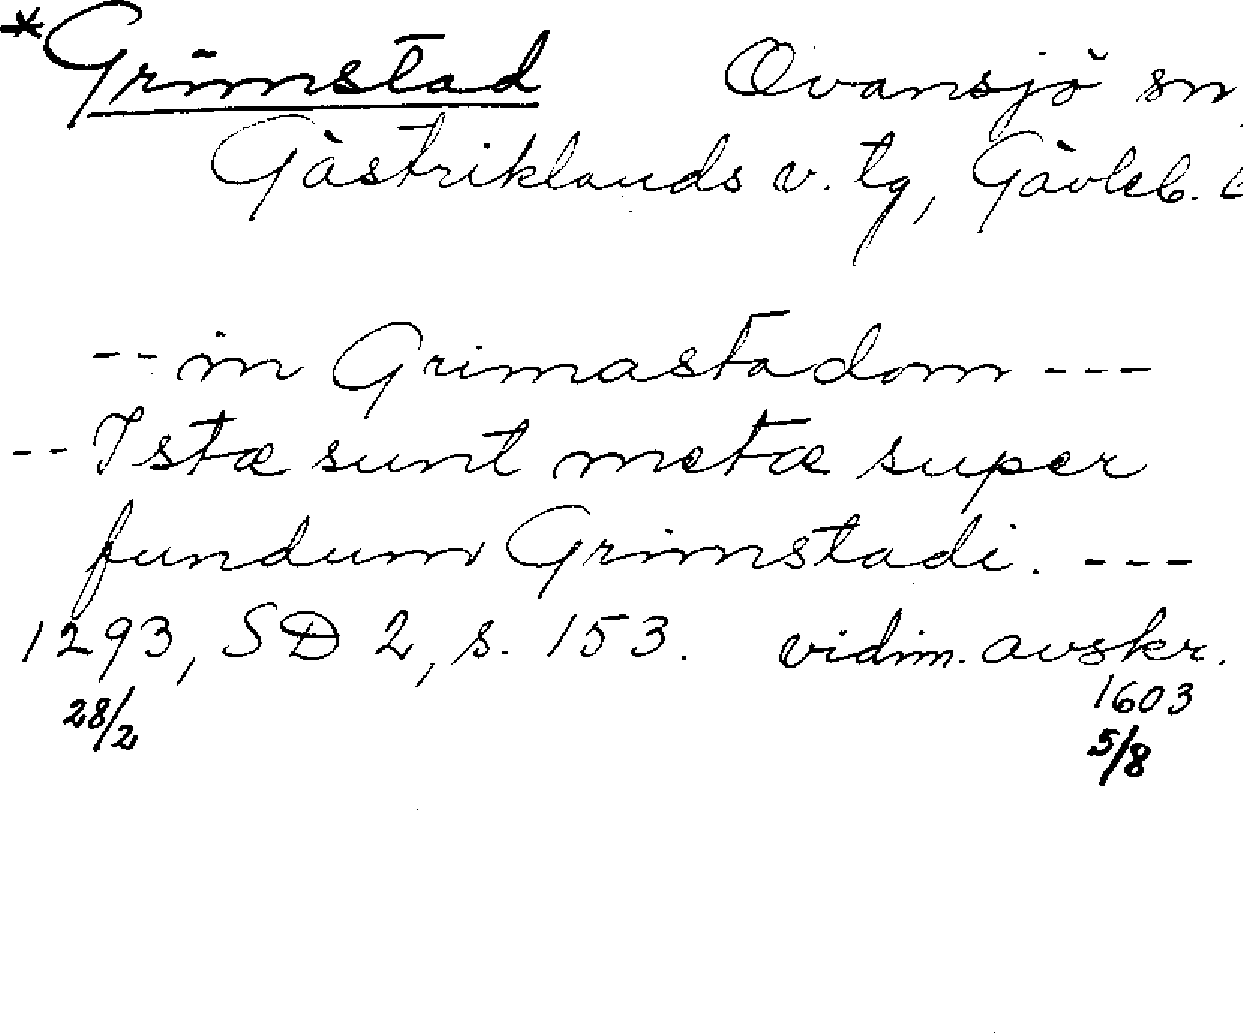 *Grimstad Ovansjö sn,
Gästriklands v. tg, Gävleb.
-- in Grimastadom ---
-- Istæ sunt metæ super
fundum Grimstadi. ---
1293, SD 2, s. 153. vidim. avskr.
28/2 1603
5/8